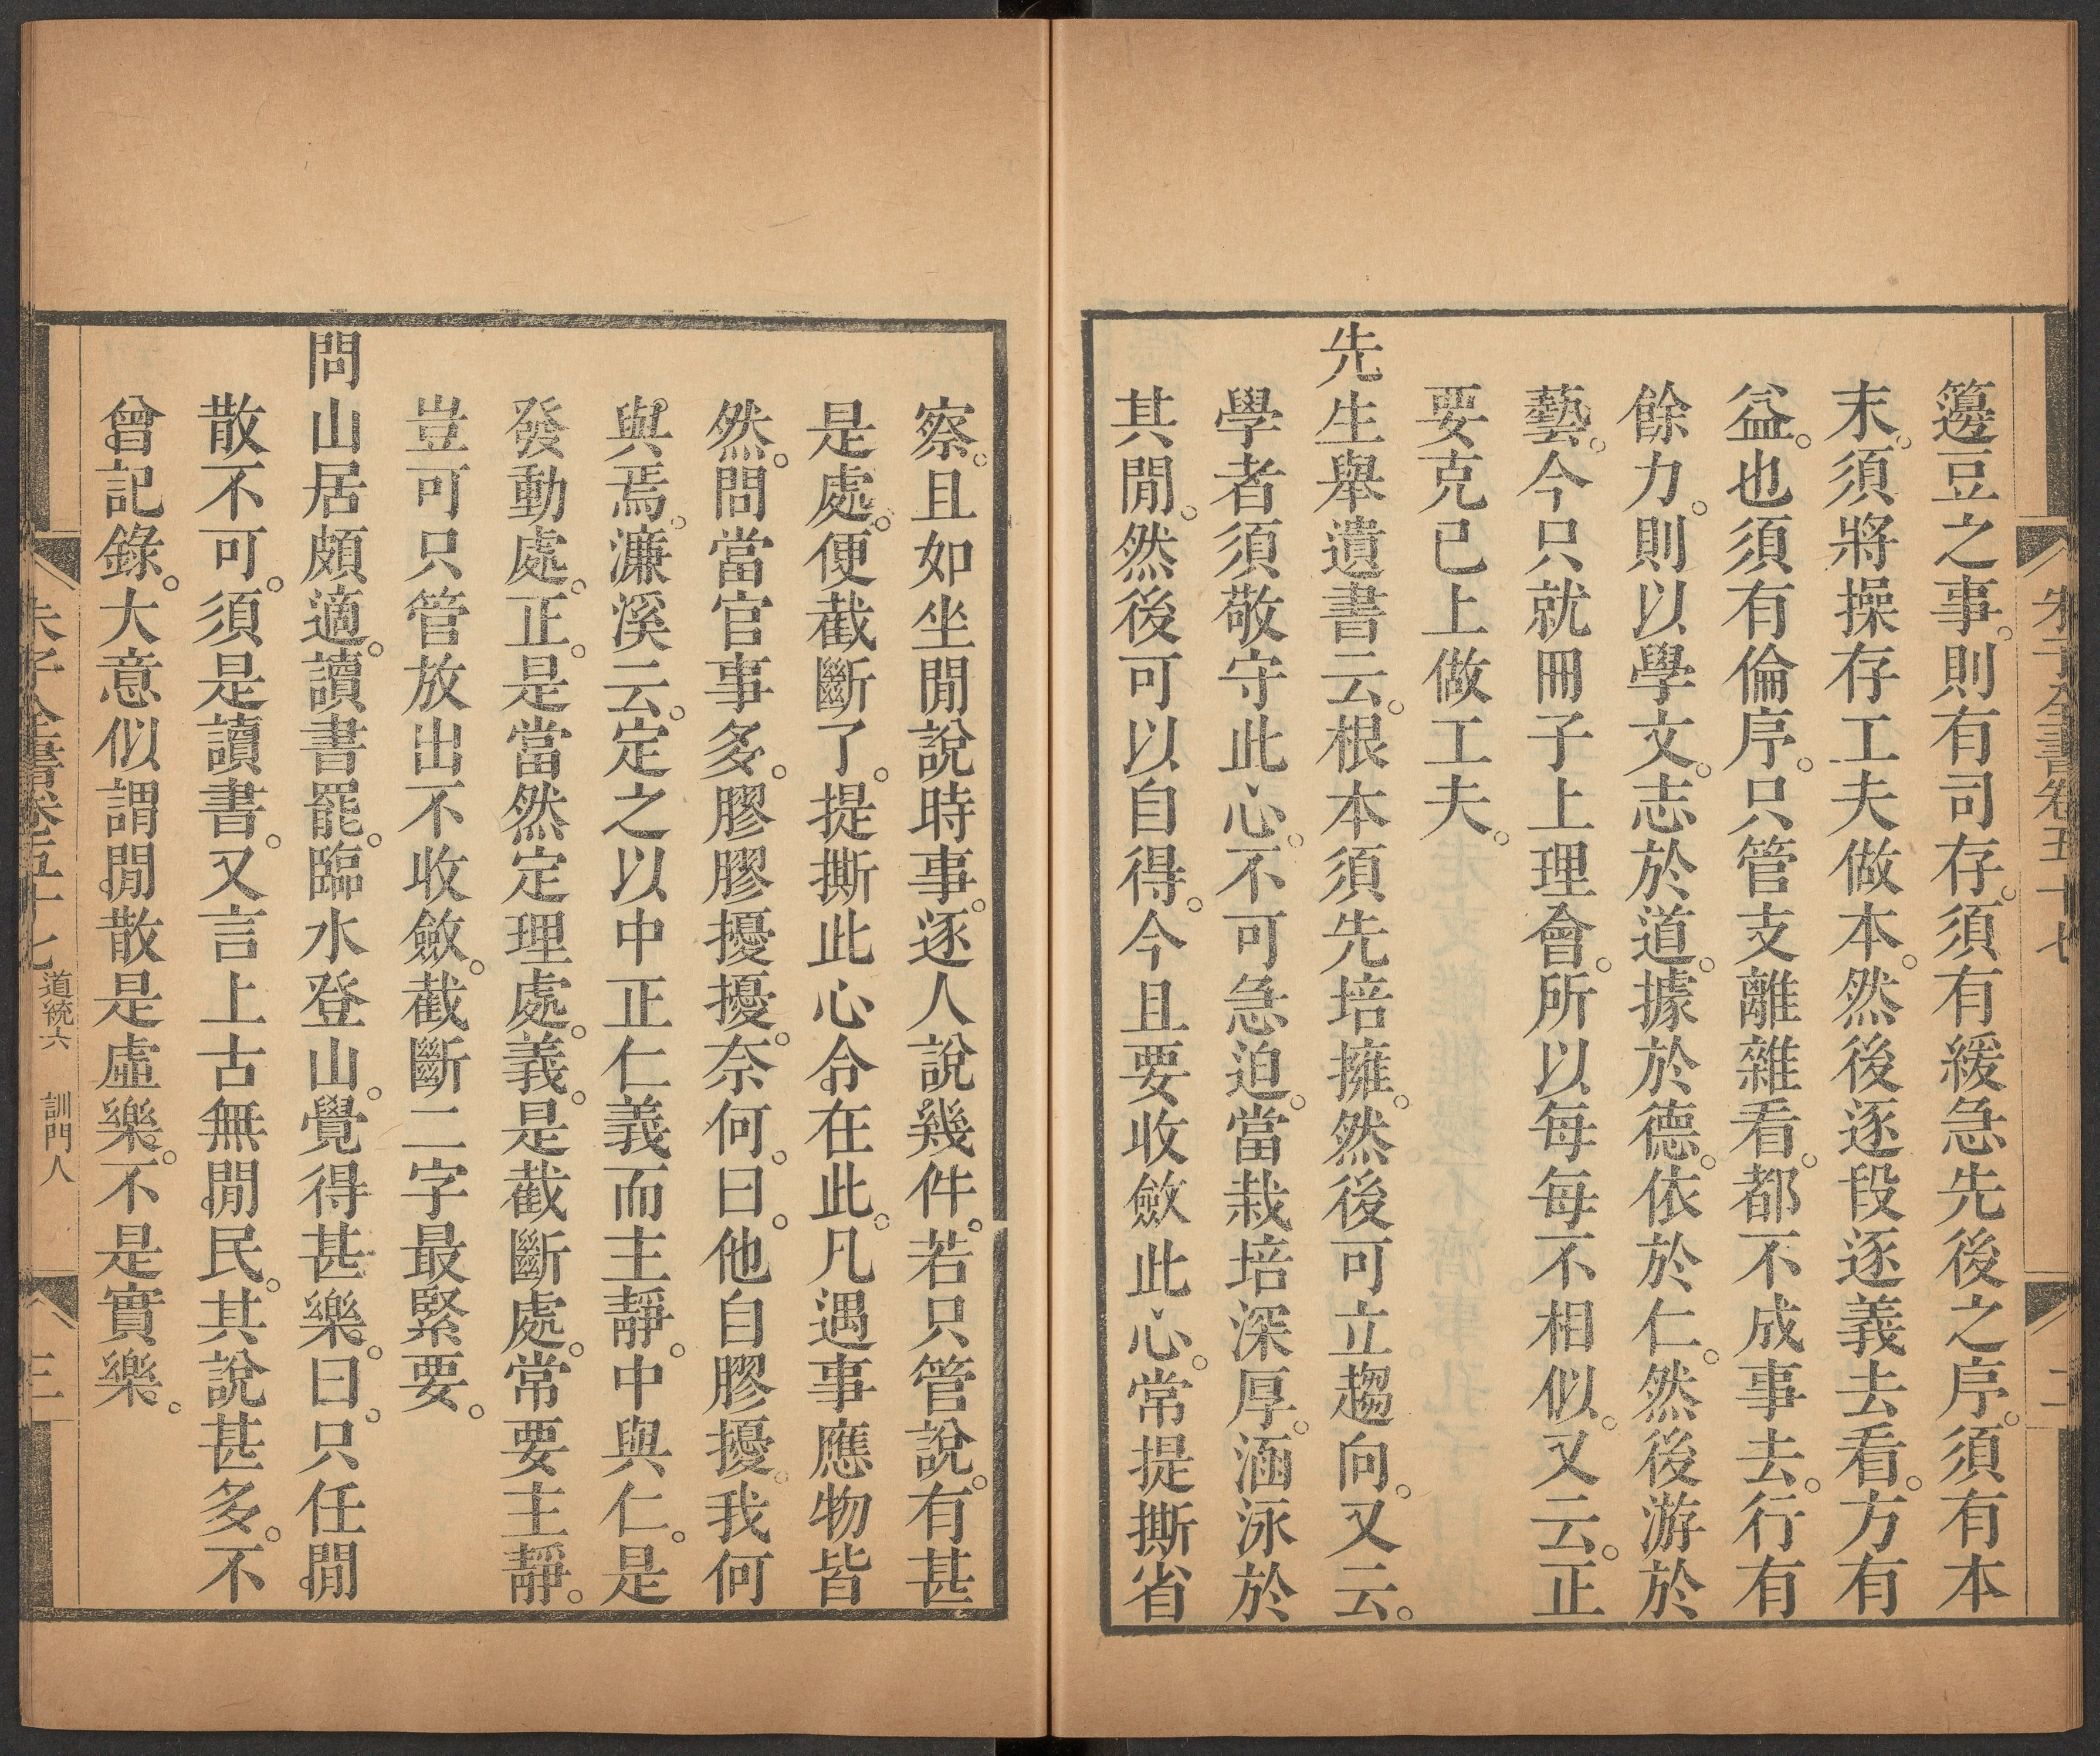 朱子全書卷五十七
二
籩豆之事。則有司存。須有緩急先後之序。須有本
末。須將操存工夫做本。然後逐段逐義去看。方有
益。也須有倫序。只管支離雜看。都不成事去。行有
餘力。則以學文。志於道。據於德。依於仁。然後游於
藝。今只就冊子上理會。所以每每不相似。又云。正
要克己上做工夫。
先生舉遺書云。根本須先培擁。然後可立趨向。又云。
學者須敬守此心。不可急迫。當栽培深厚。涵泳於
其閒。然後可以自得。今且要收斂此心。常提撕省
察。且如坐閒說時事。逐人說幾件。若只管說。有甚
是處。便截斷了。提撕此心。令在此。凡遇事應物皆
然。問當官事多。膠膠擾擾。奈何。曰。他自膠擾。我何
與焉。濂溪云。定之以中正仁義而主靜。中與仁。是
發動處。正。是當然定理處。義。是截斷處。常要主靜。
豈可只管放出不收斂。截斷二字最緊要。
問山居頗適。讀書罷。臨水登山。覺得甚樂。曰。只任閒
散不可。須是讀書。又言上古無閒民。其說甚多。不
曾記錄。大意似謂閒散是虛樂。不是實樂。
朱子全書卷五十七 道統六 訓門人
三